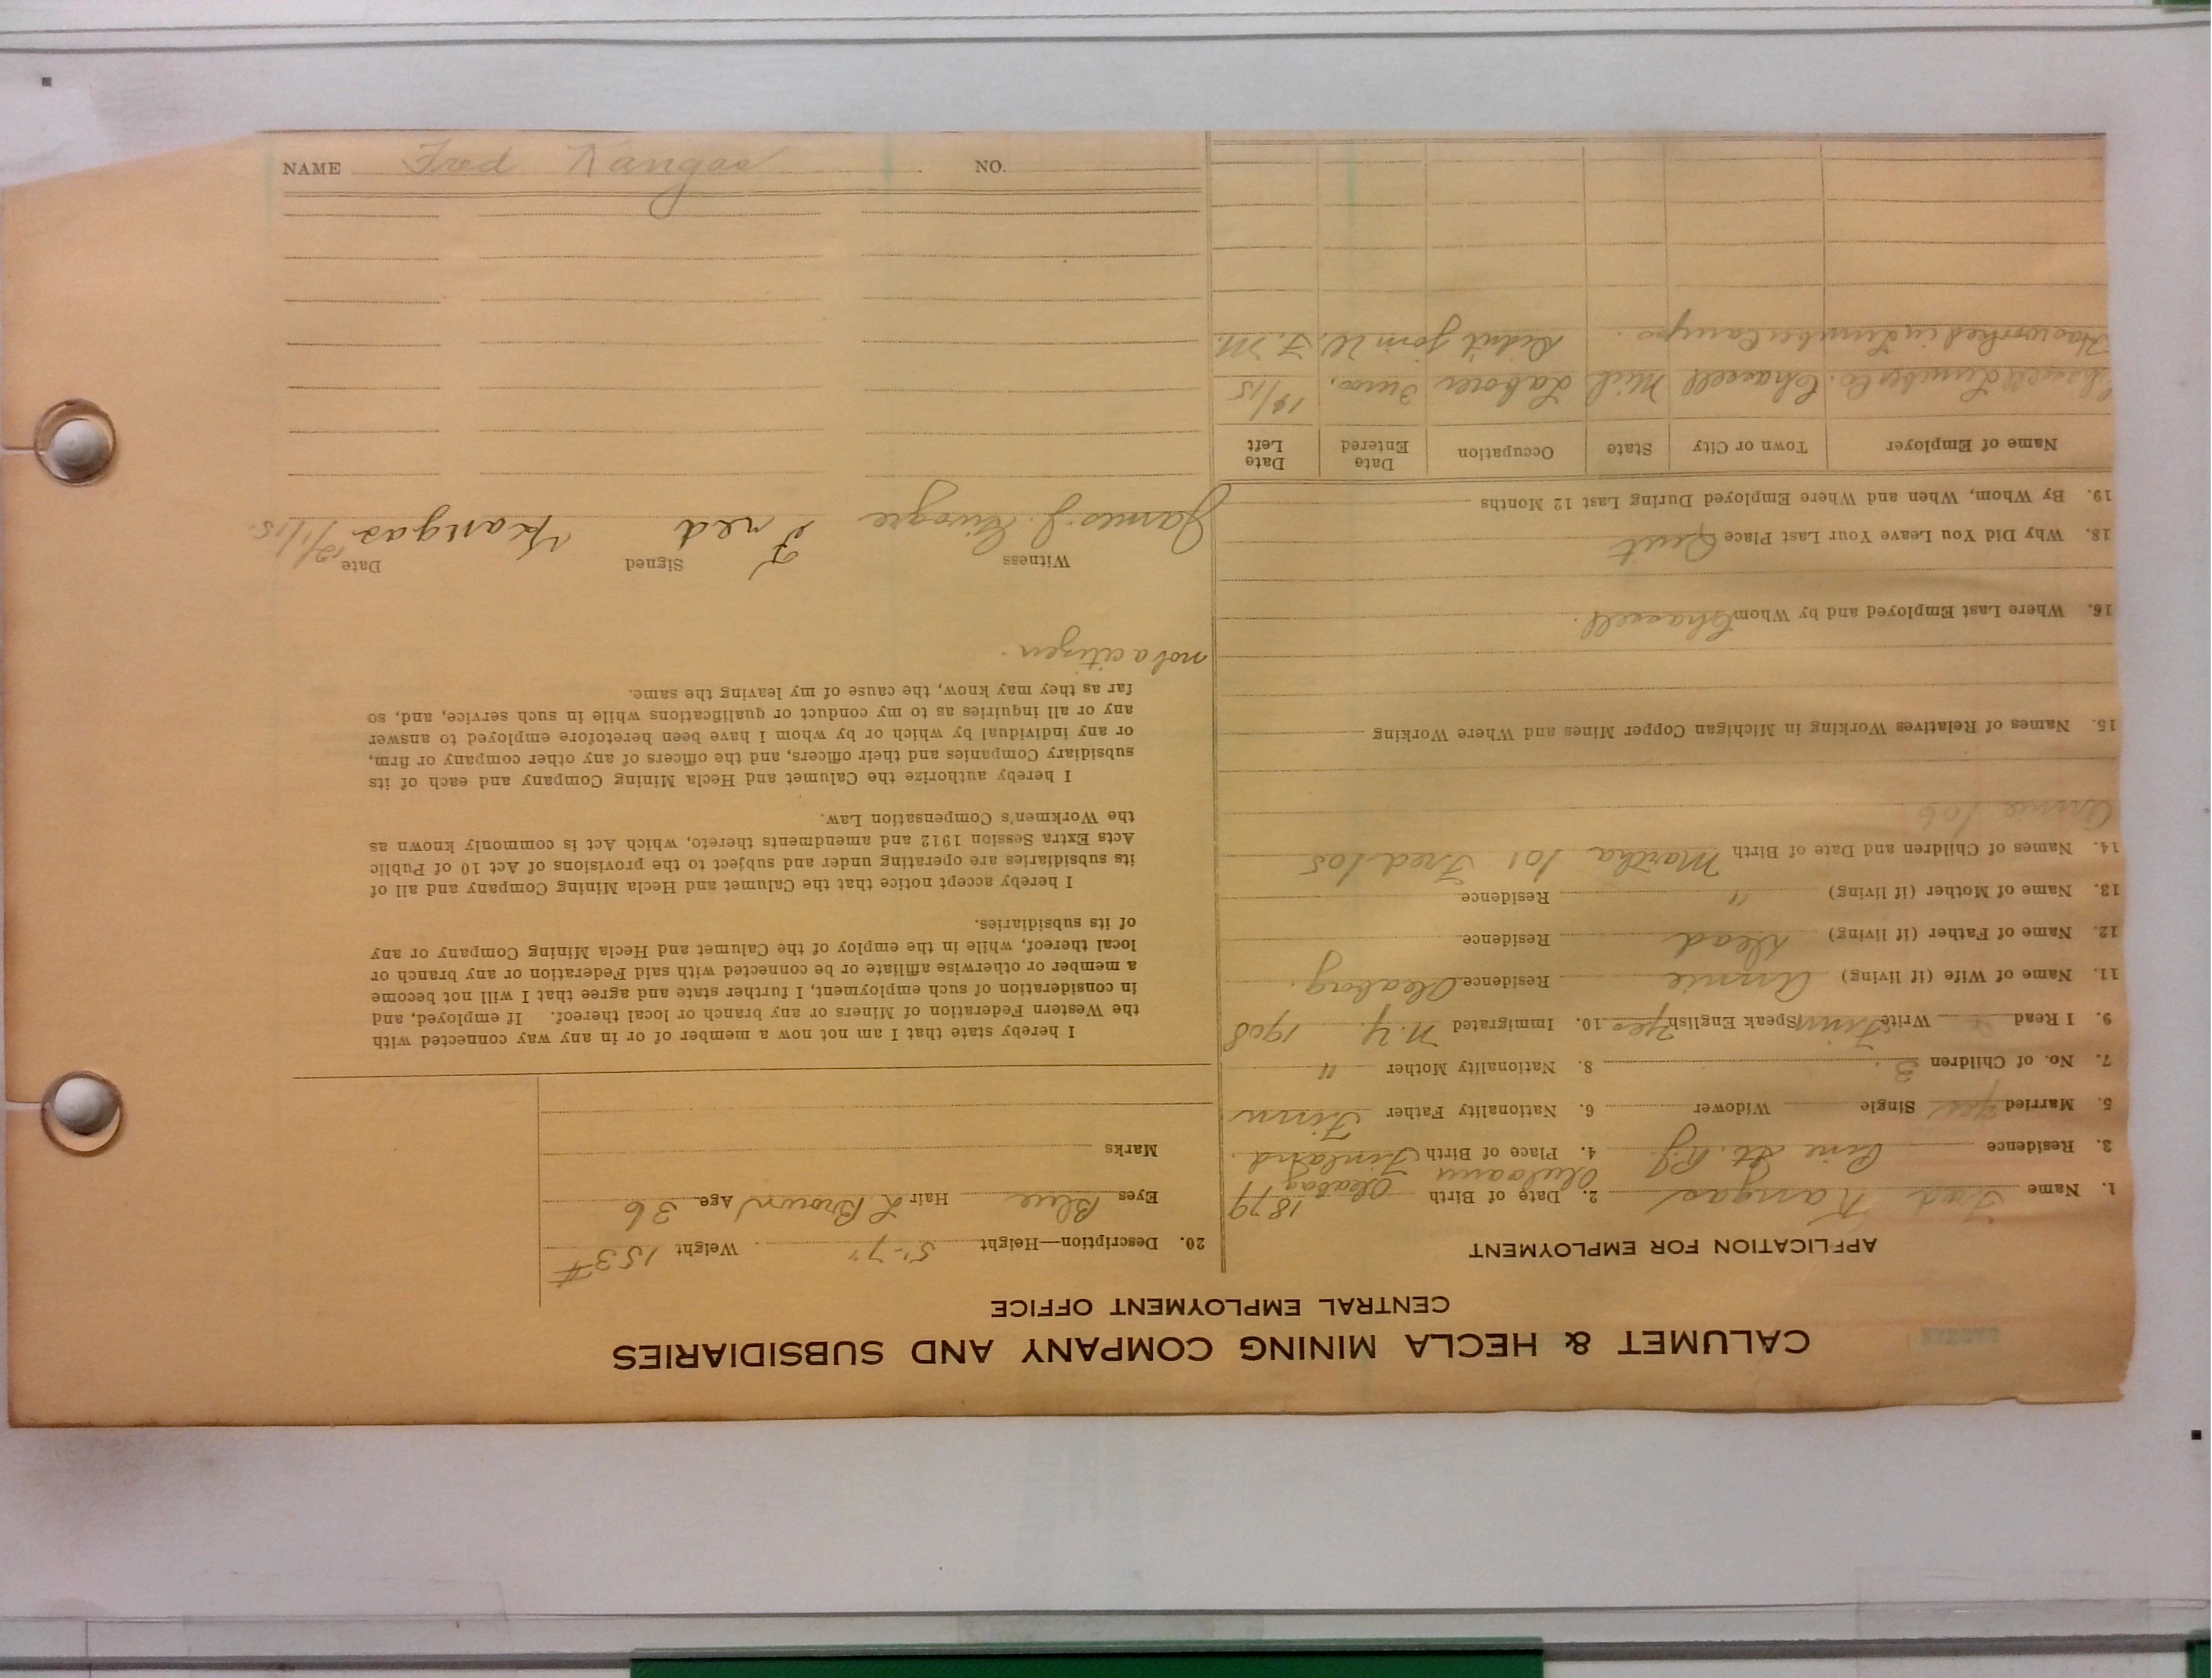 CALUMET & HECLA MINING COMPANY AND SUBSIDIARIES
CENTRAL EMPLOYMENT OFFICE
APPLICATION FOR EMPLOYMENT
1. Name Fred Kangas 2. Date of Birth 1879
Oleaborg
3. Residence Pine St. 4. Place of Birth Finland.
5. Married yes Single Widower 6. Nationality Father Finn
7. No. of Children 3 8. Nationality Mother "
9. I Read Write Finn Speak English yes 10. Immigrated N.Y. 1908
11. Name of Wife (if living) Annie Residence Oleaborg.
12. Name of Father (if living) Dead Residence
13. Name of Mother (if living) " Residence
14. Names of Children and Date of Birth Martha 101 Fred 105
Annie 106
15. Names of Relatives Working in Michigan Copper Mines and Where Working
16. Where Last Employed and by Whom Chassell.
18. Why Did You Leave Your Last Place Quit
19. By Whom, When and Where Employed During Last 12 Months
Name of Employer Town or City State Occupation Date Entered Date Left
Chassell Lumber Co. Chassell Mich Laborer 3 mos. /15
Has worked in Lumber Camps. Didn't join W. F. M.
20. Description—Height 5'-7" Weight 153#
Eyes Blue Hair L Brown Age 36
Marks
I hereby state that I am not now a member of or in any way connected with
the Western Federation of Miners or any branch or local thereof. If employed, and
in consideration of such employment, I further state and agree that I will not become
a member or otherwise affiliate or be connected with said Federation or any branch or
local thereof, while in the employ of the Calumet and Hecla Mining Company or any
of its subsidiaries.
I hereby accept notice that the Calumet and Hecla Mining Company and all of
its subsidiaries are operating under and subject to the provisions of Act 10 of Public
Acts Extra Session 1912 and amendments thereto, which Act is commonly known as
the Workmen's Compensation Law.
I hereby authorize the Calumet and Hecla Mining Company and each of its
subsidiary Companies and their officers, and the officers of any other company or firm,
or any individual by which or by whom I have been heretofore employed to answer
any or all inquiries as to my conduct or qualifications while in such service, and, so
far as they may know, the cause of my leaving the same.
not a citizen.
Witness Signed Date
James J. Fred Kangas 12/1/15.
NAME Fred Kangas NO.